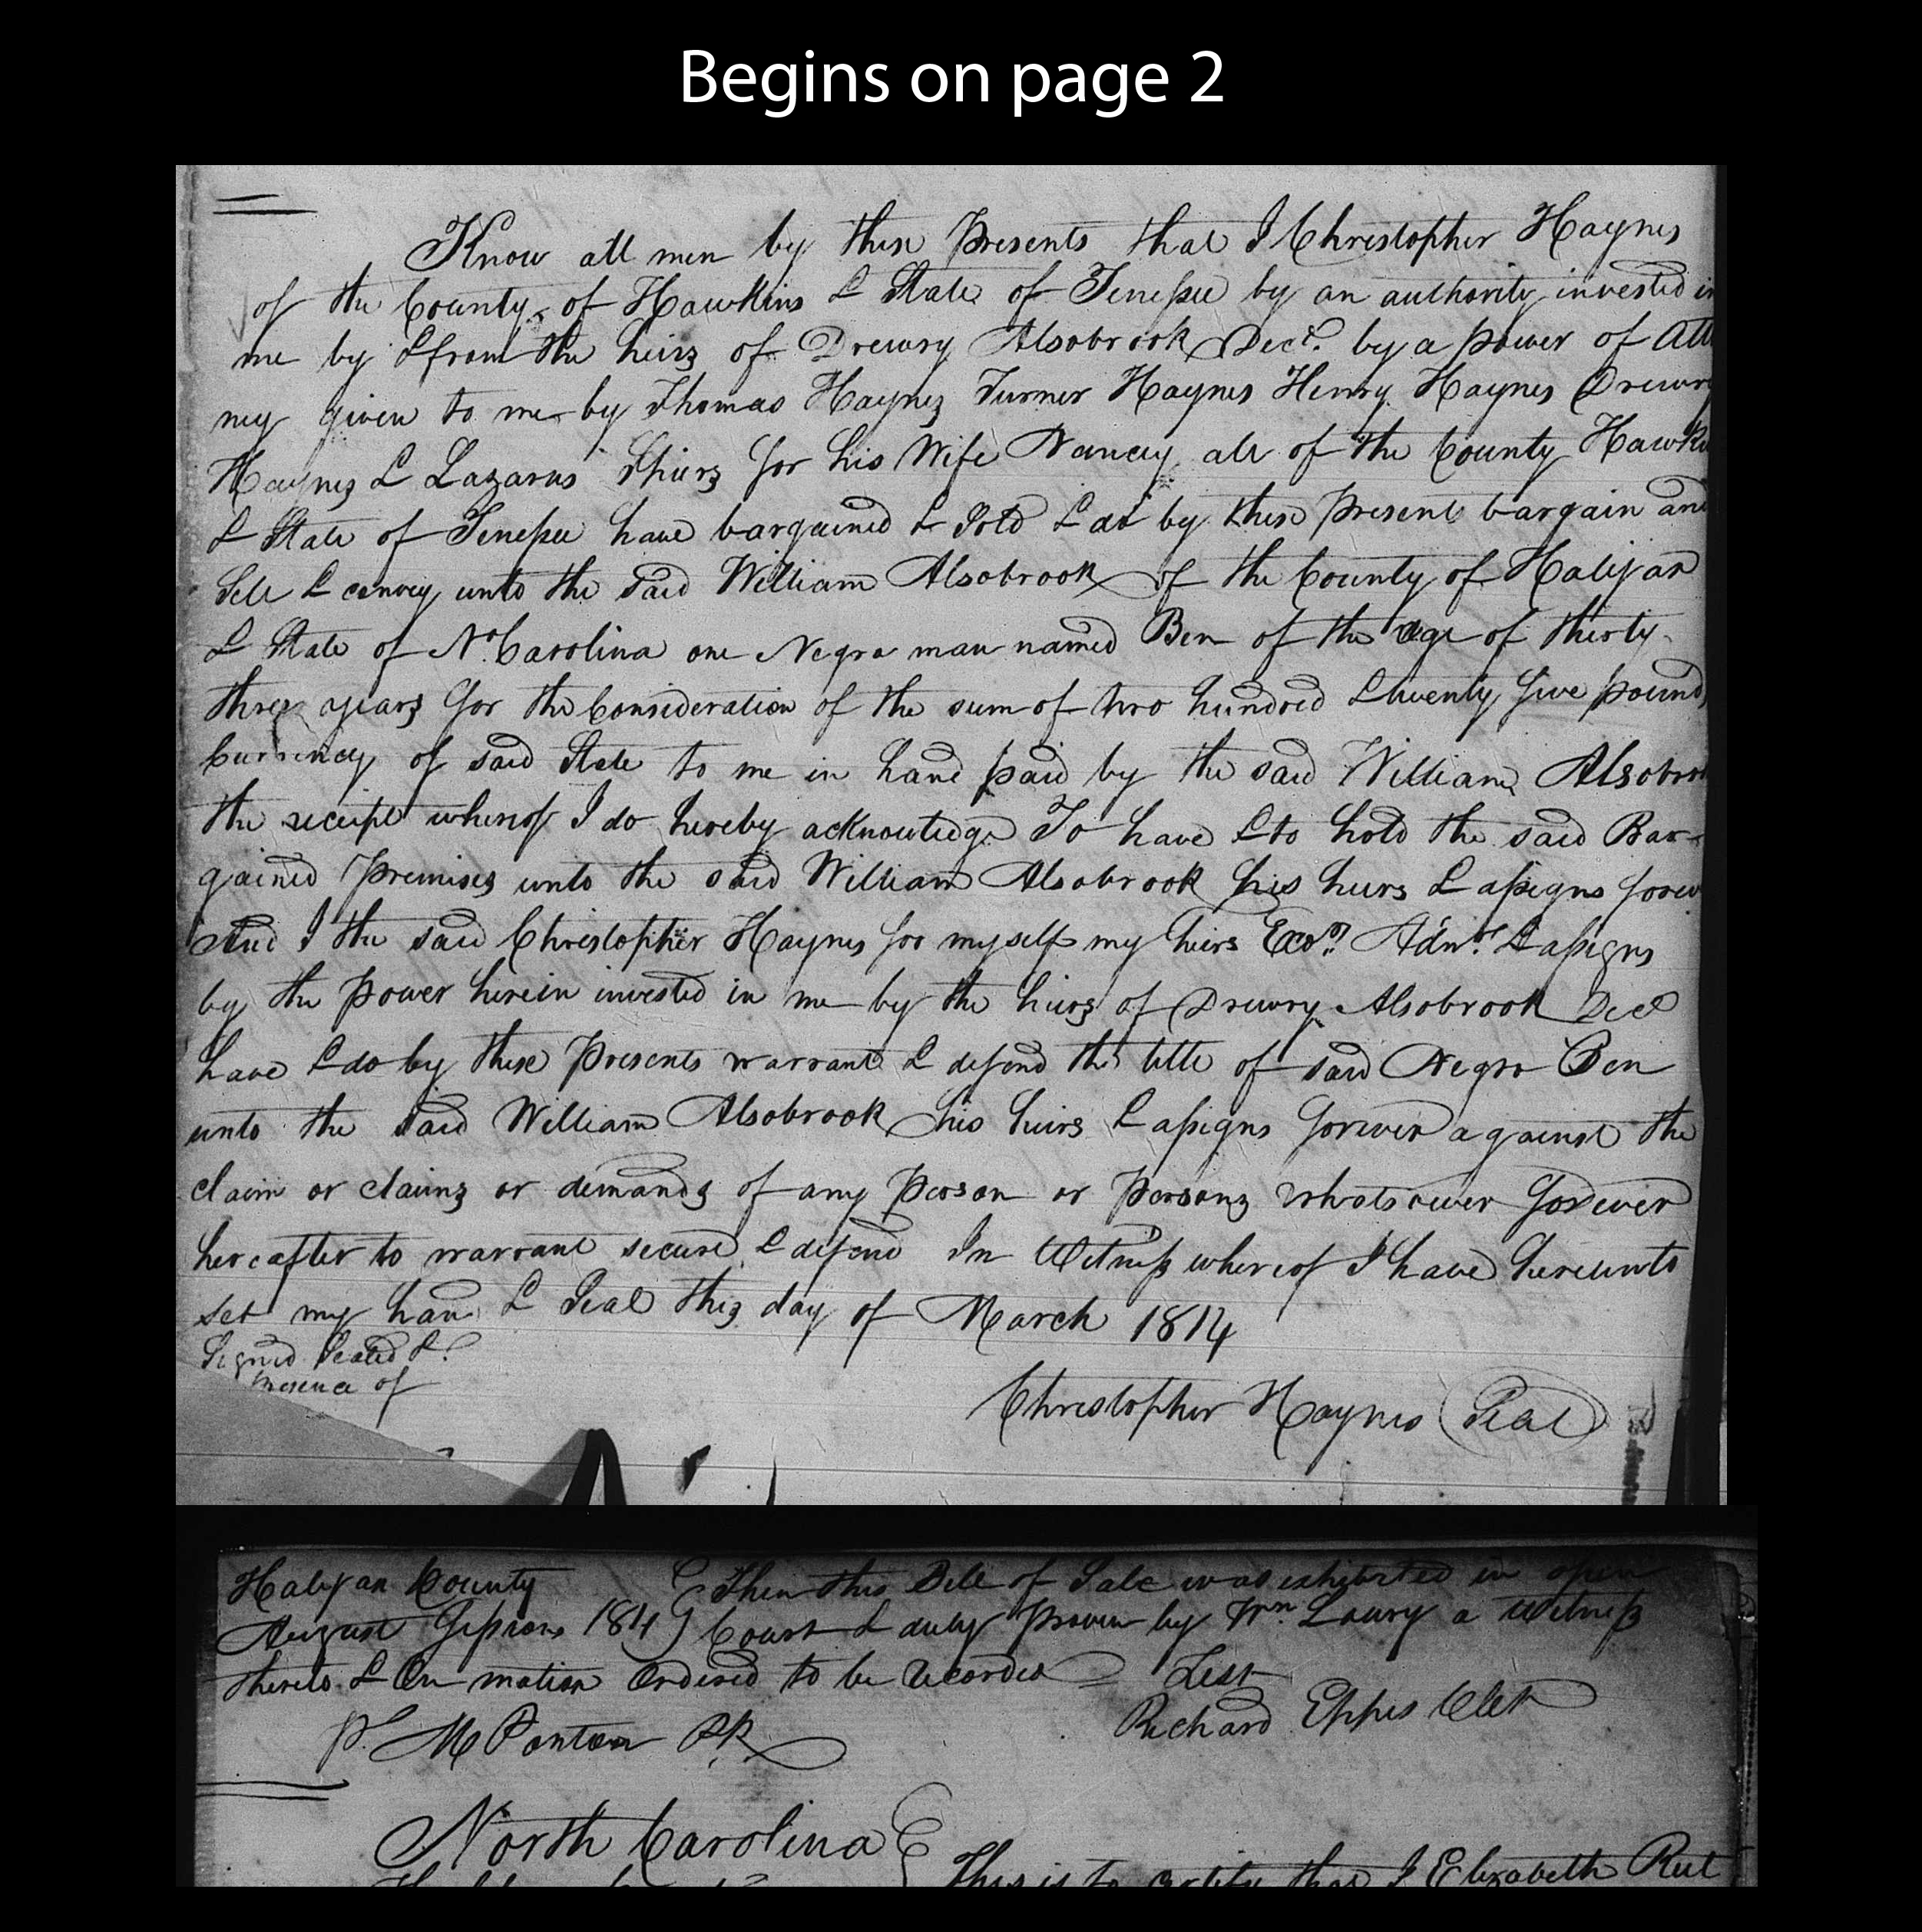 Begins on page 2
Know all men by these Presents that I Christopher Haynes
of the County of Hawkins & State of Tenessee by an authority invested in
me by & from the heirs of Drewry Alsobrook Decd. by a power of Att
ney given to me by Thomas Haynes Turner Haynes Henry Haynes Drewry
Haynes & Lazarus Spiers for his Wife Nancy all of the County Hawki
& State of Tenessee have bargained & Sold & do by these Present bargain and
Sell & convey unto the said William Alsobrook of the County of Halifax
& State of No. Carolina one Negro man named Ben of the age of thirty
three years for the Consideration of the sum of two hundred & twenty five pounds
Currency of said State to me in hand paid by the said William Alsobrook
the receipt whereof I do hereby acknowledge To have & to hold the said Bar-
gained Premises unto the said William Alsobrook his heirs & assigns forev
And I the said Christopher Haynes for myself my heirs Exors. Admrs. & assigns
by the Power herein invested in me by the heirs of Drewry Alsobrook Decd
have & do by these Presents warrant & defend the title of said Negro Ben
unto the said William Alsobrook his heirs & assigns forever against the
claim or claims or demands of any Person or Persons whatsoever forever
hereafter to warrant secure & defend In Witness whereof I have hereunto
set my hand & Seal this day of March 1814
Signed Sealed &c
presence of
Christopher Haynes (Seal)
Halifax County } Then this Bill of Sale was exhibited in open
August Sessions 1814 } Court & duly proven by Wm. Lowry a Witness
thereto & On motion Ordered to be Recorded = Test
Richard Eppes Clek
Pr. M Ponton P.R.
North Carolina }
This is to certify that I Elizabeth